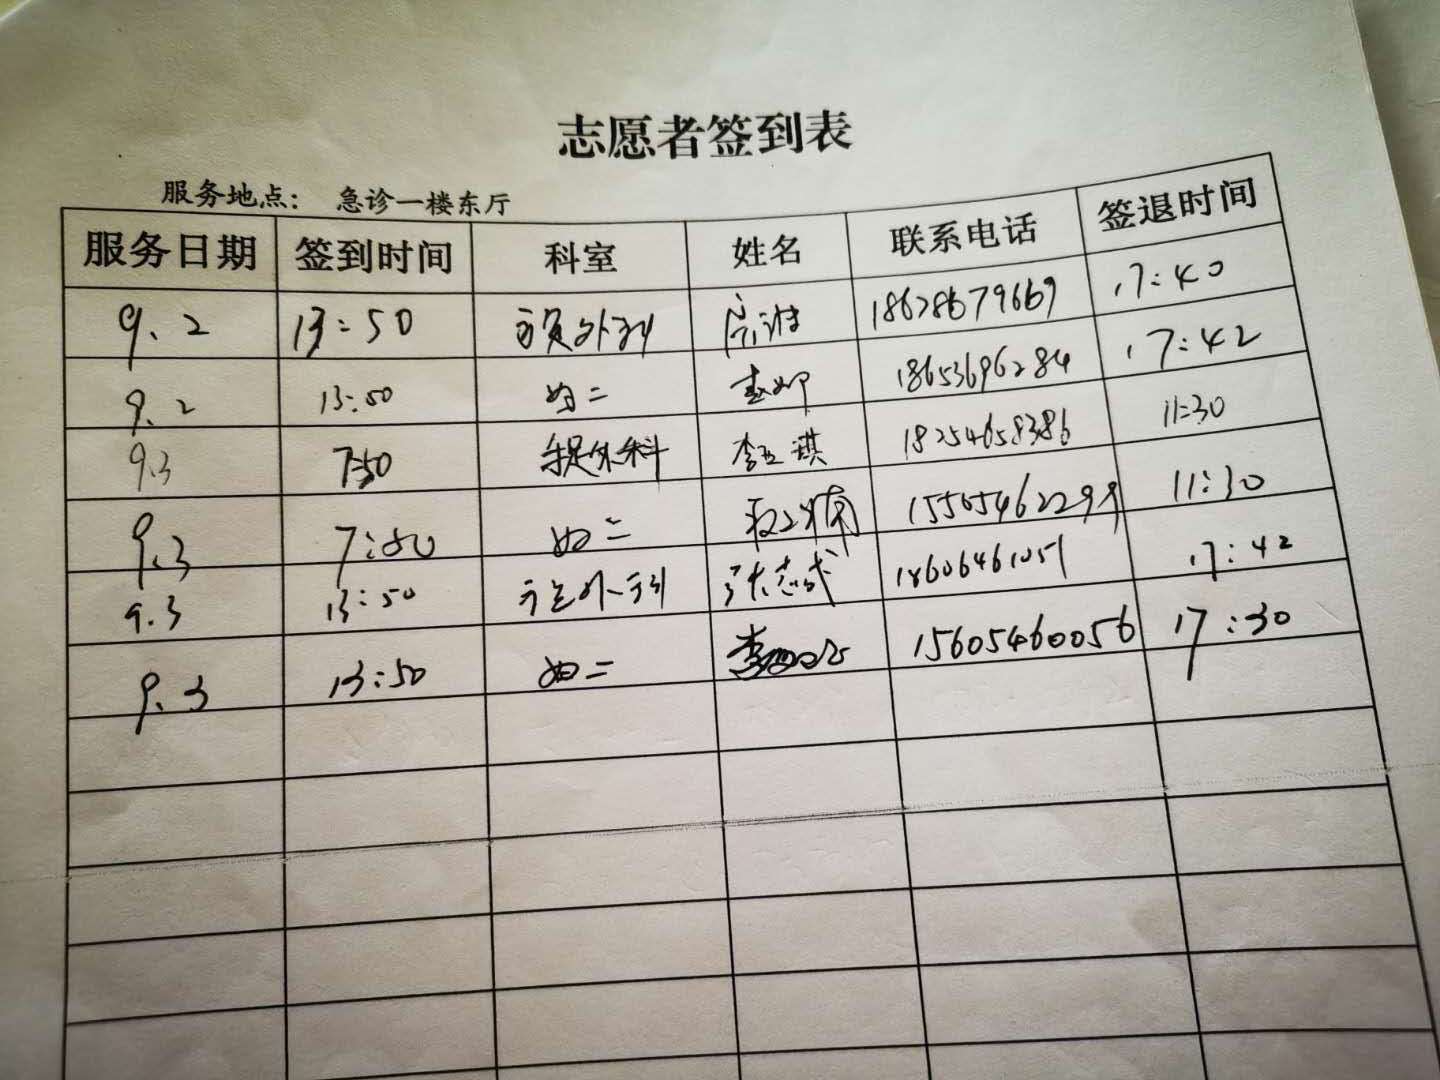 志愿者签到表
服务地点： 急诊一楼东厅
服务日期 签到时间 科室 姓名 联系电话 签退时间
9.2 13:50 18628679669 17:40
9.2 13:50 妇二 18653696284 17:42
9.3 7:50 外科 李 琪 18254658386 11:30
9.3 7:50 妇二 15505462299 11:30
9.3 13:50 张志成 18606461051 17:42
9.3 13:50 妇二 李 15605460056 17:30